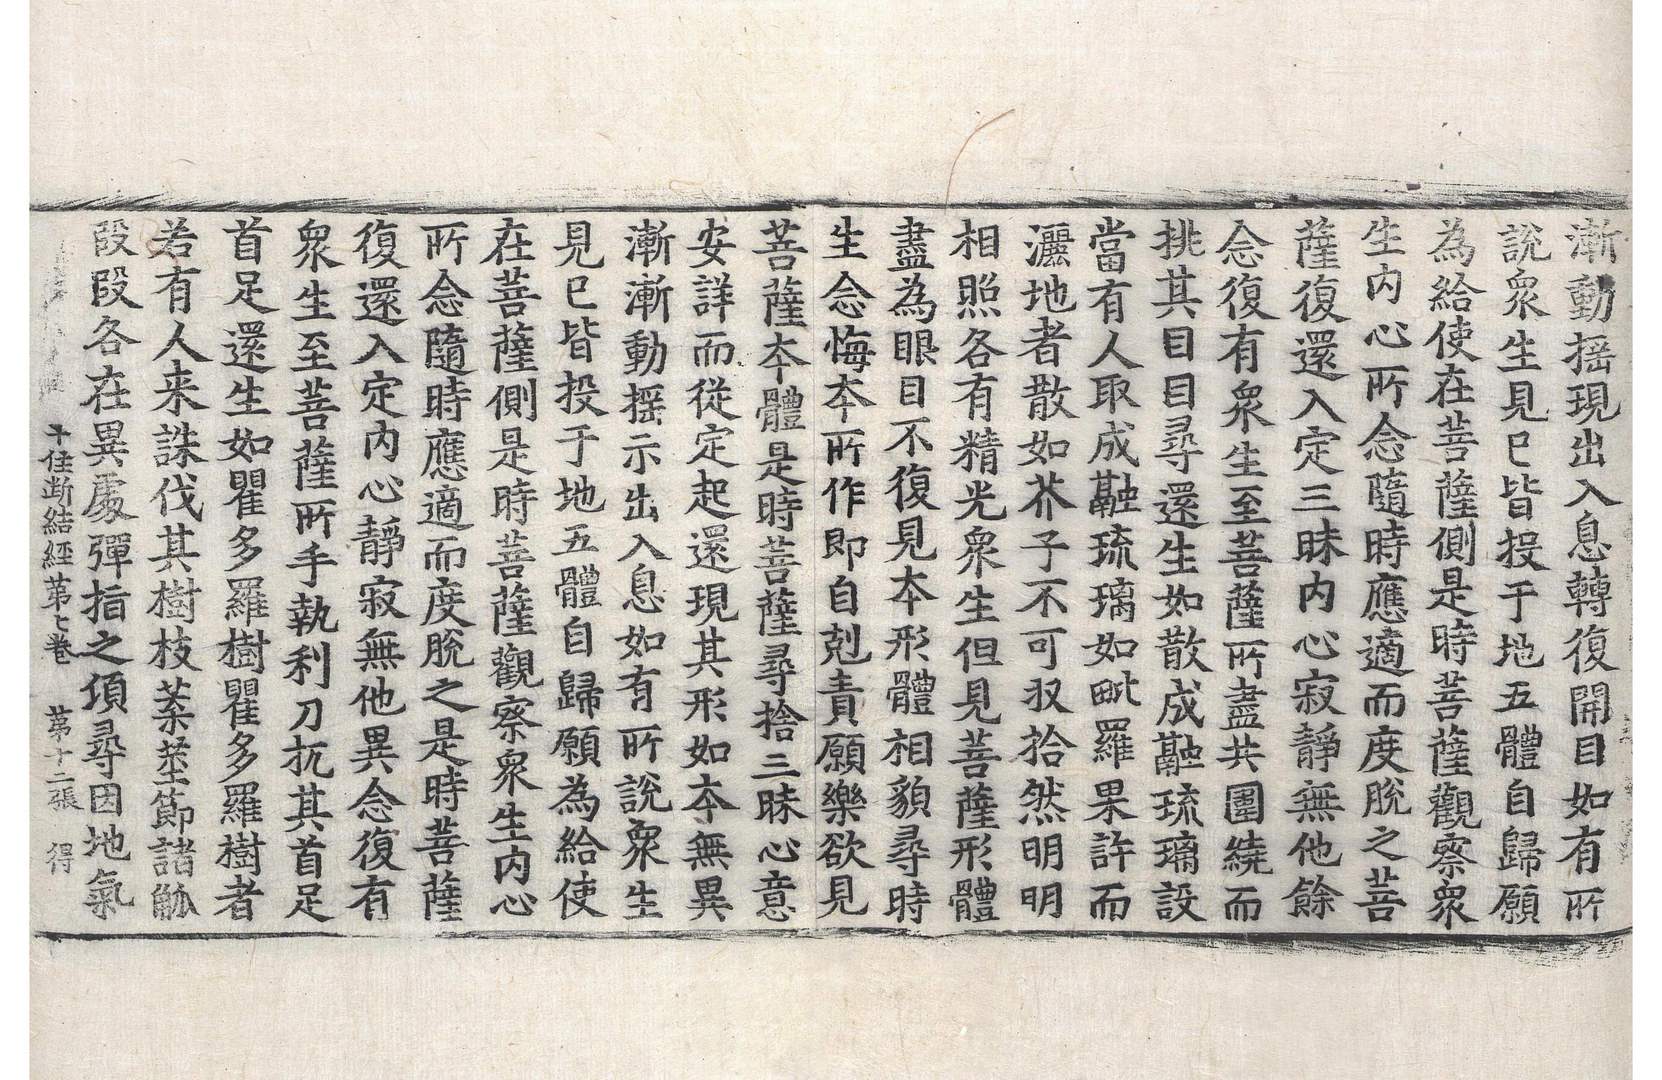 漸動揺現出入息轉復開目如有所
說衆生見已皆投于地五體自歸願
為給使在菩薩側是時菩薩觀察衆
生内心所念隨時應適而度脫之菩
薩復還入定三昧内心寂靜無他餘
念復有衆生至菩薩所盡共圍繞而
挑其目目尋還生如散成融琉璃設
當有人取成融琉璃如毗羅果許而
灑地者散如芥子不可収拾然明明
相照各有精光衆生但見菩薩形體
盡為眼目不復見夲形體相貌尋時
生念悔夲所作即自剋責願樂欲見
菩薩夲體是時菩薩尋捨三昧心意
安詳而從定起還現其形如夲無異
漸漸動揺示出入息如有所說衆生
見已皆投于地五體自歸願為給使
在菩薩側是時菩薩觀察衆生内心
所念隨時應適而度脫之是時菩薩
復還入定内心靜寂無他異念復有
衆生至菩薩所手執利刀抗其首足
首足還生如瞿多羅樹瞿多羅樹者
若有人来誅伐其樹枝葉莖節諸觚
段段各在異處彈指之頃尋因地氣
十住断結經苐七卷　苐十二張　得